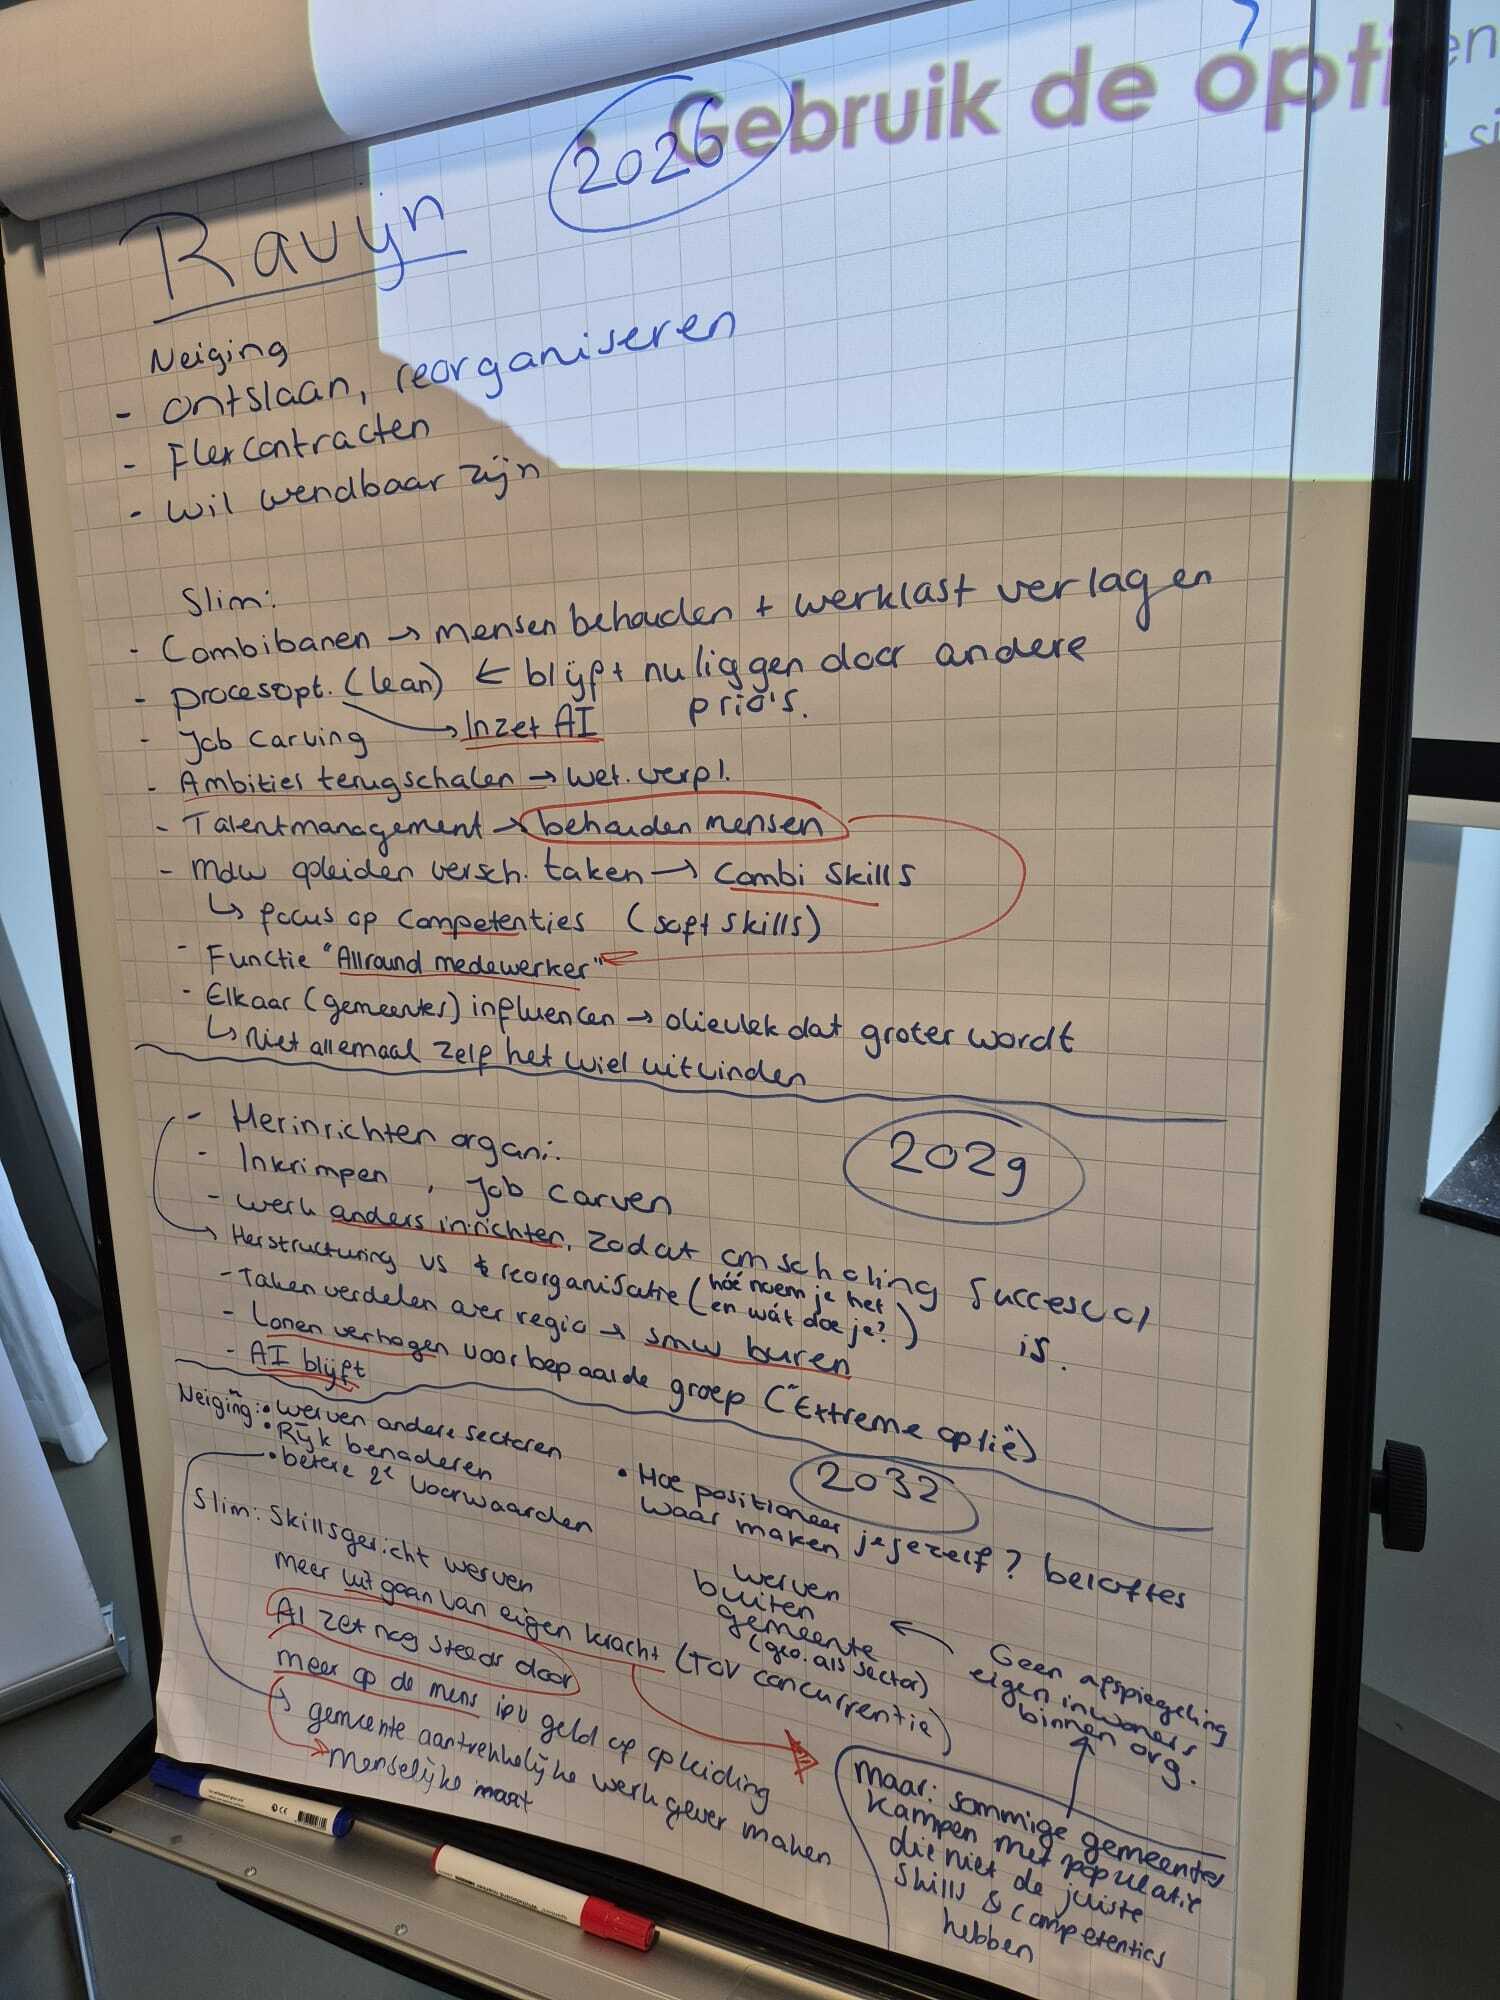 Gebruik de opti
2026
Ravijn
Neiging
- ontslaan, reorganiseren
- Flexcontracten
- wil wendbaar zijn
Slim:
- Combibanen → mensen behouden + werklast verlagen
- procesopt. (lean) ← blijft nu liggen door andere
prio's.
→ Inzet AI
- Job carving
- Ambities terugschalen → wet. verpl.
- Talentmanagement → behouden mensen
- Mdw opleiden versch. taken → Combi skills
↳ focus op Competenties (soft skills)
- Functie "Allround medewerker"
- Elkaar (gemeentes) influencen → olievlek dat groter wordt
↳ Niet allemaal zelf het wiel uitvinden
2029
- Herinrichten organi.
- Inkrimpen, Job carven
- Werk anders inrichten, zodat omscholing succesvol
is.
→ Herstructuring vs reorganisatie (hóé noem je het
en wát doe je?)
- Taken verdelen over regio → smw buren
- Lonen verhogen voor bepaalde groep ("Extreme optie")
- AI blijft
2032
Neiging: • werven andere sectoren
• Rijk benaderen
• betere 2e voorwaarden
• Hoe positioneer je jezelf? beloftes
waar maken
Slim: Skillsgericht werven
meer uitgaan van eigen kracht (TOV concurrentie)
AI zet nog steeds door
meer op de mens ipv geld op opleiding
→ gemeente aantrekkelijke werkgever maken
→ Menselijke maat
werven
buiten
gemeente
(geo. als sector)
← Geen afspiegeling
eigen inwoners
binnen org.
Maar: sommige gemeentes
kampen met populatie
die niet de juiste
skills & competenties
hebben